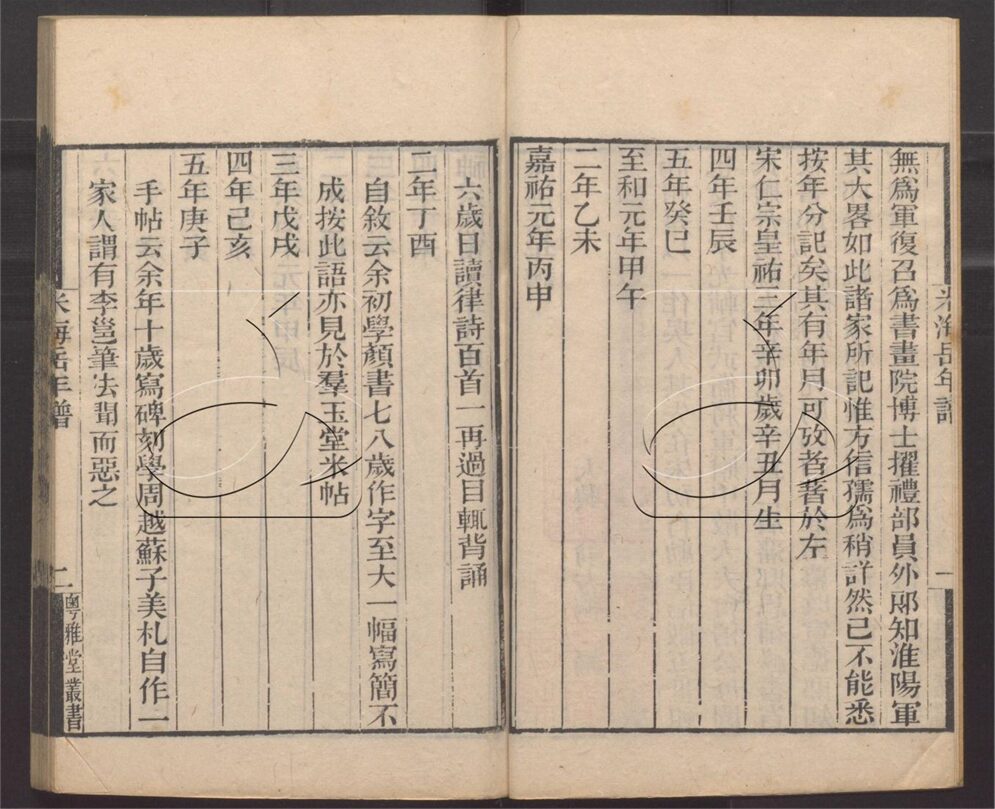 無爲軍復召爲書畫院博士擢禮部員外郎知淮陽軍
其大畧如此諸家所記惟方信孺爲稍詳然已不能悉
按年分記矣其有年月可攷者著於左
宋仁宗皇祐三年辛卯歲辛丑月生
四年壬辰
五年癸巳
至和元年甲午
二年乙未
嘉祐元年丙申
米海岳年譜
一
六歲日讀律詩百首一再過目輒背誦
二年丁酉
自敘云余初學顏書七八歲作字至大一幅寫簡不
成按此語亦見於羣玉堂米帖
三年戊戌
四年己亥
五年庚子
手帖云余年十歲寫碑刻學周越蘇子美札自作一
家人謂有李邕筆法聞而惡之
米海岳年譜
二
粵雅堂叢書